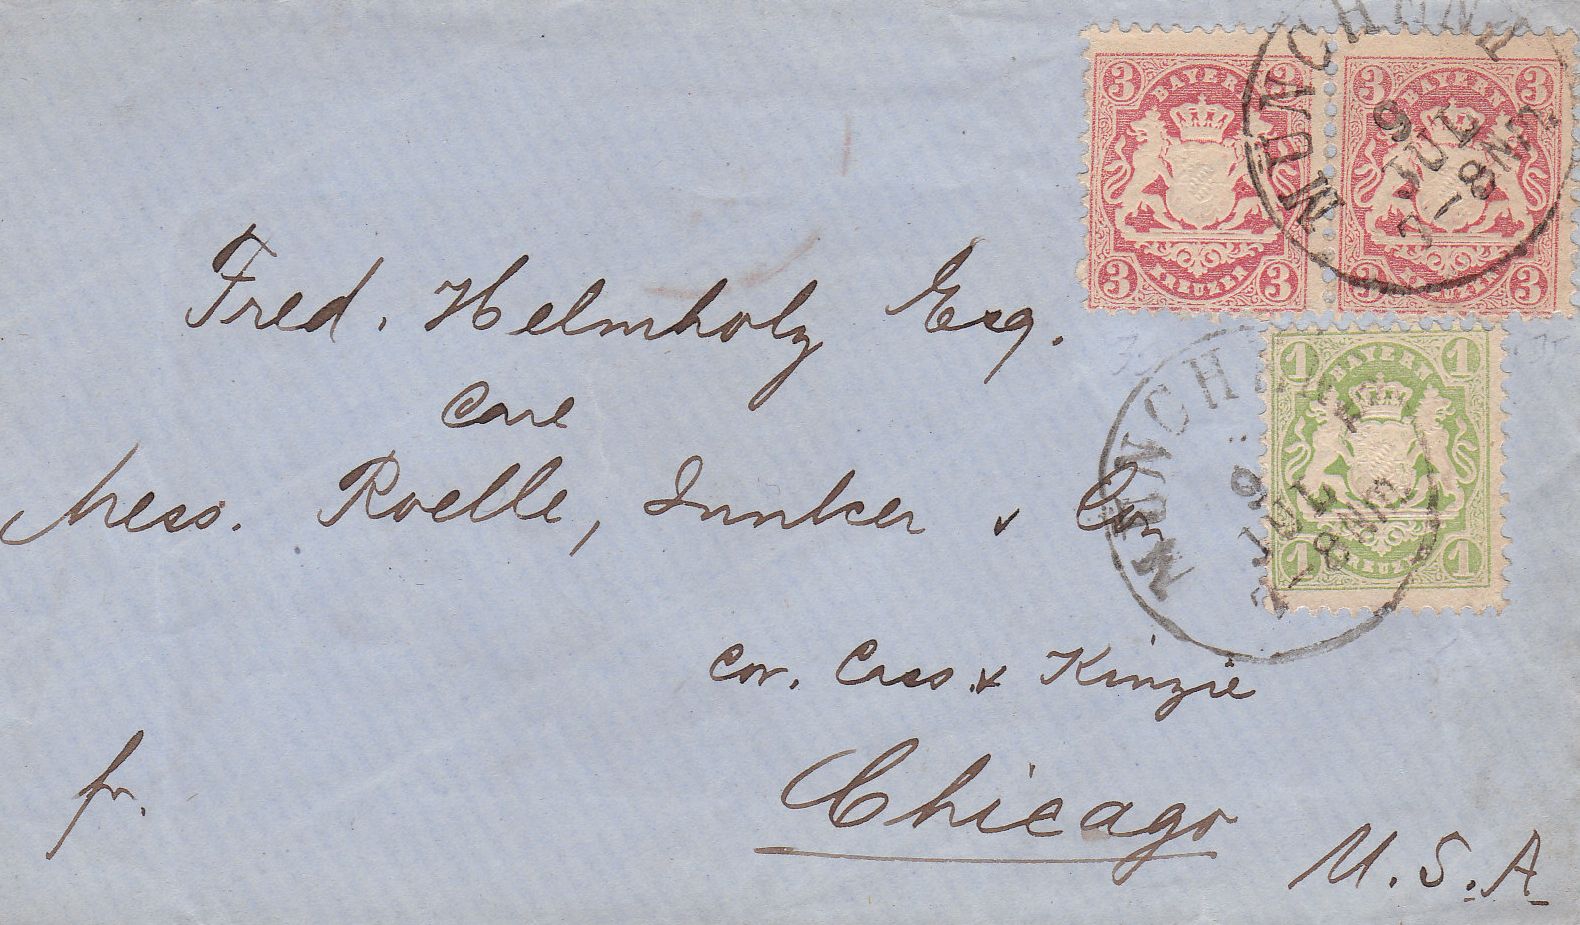 3 BAYERN 3
3 KREUZER 3
3 BAYERN 3
3 KREUZER 3
MÜNCHEN
9 JUL
1 BAYERN 1
1 KREUZER 1
MÜNCHEN
9 JUL
Fred. Helmholz Esq.
care
Mess. Roelle, Junker & Co
cor. Cass. & Kinzie
fr.
Chicago
U.S.A